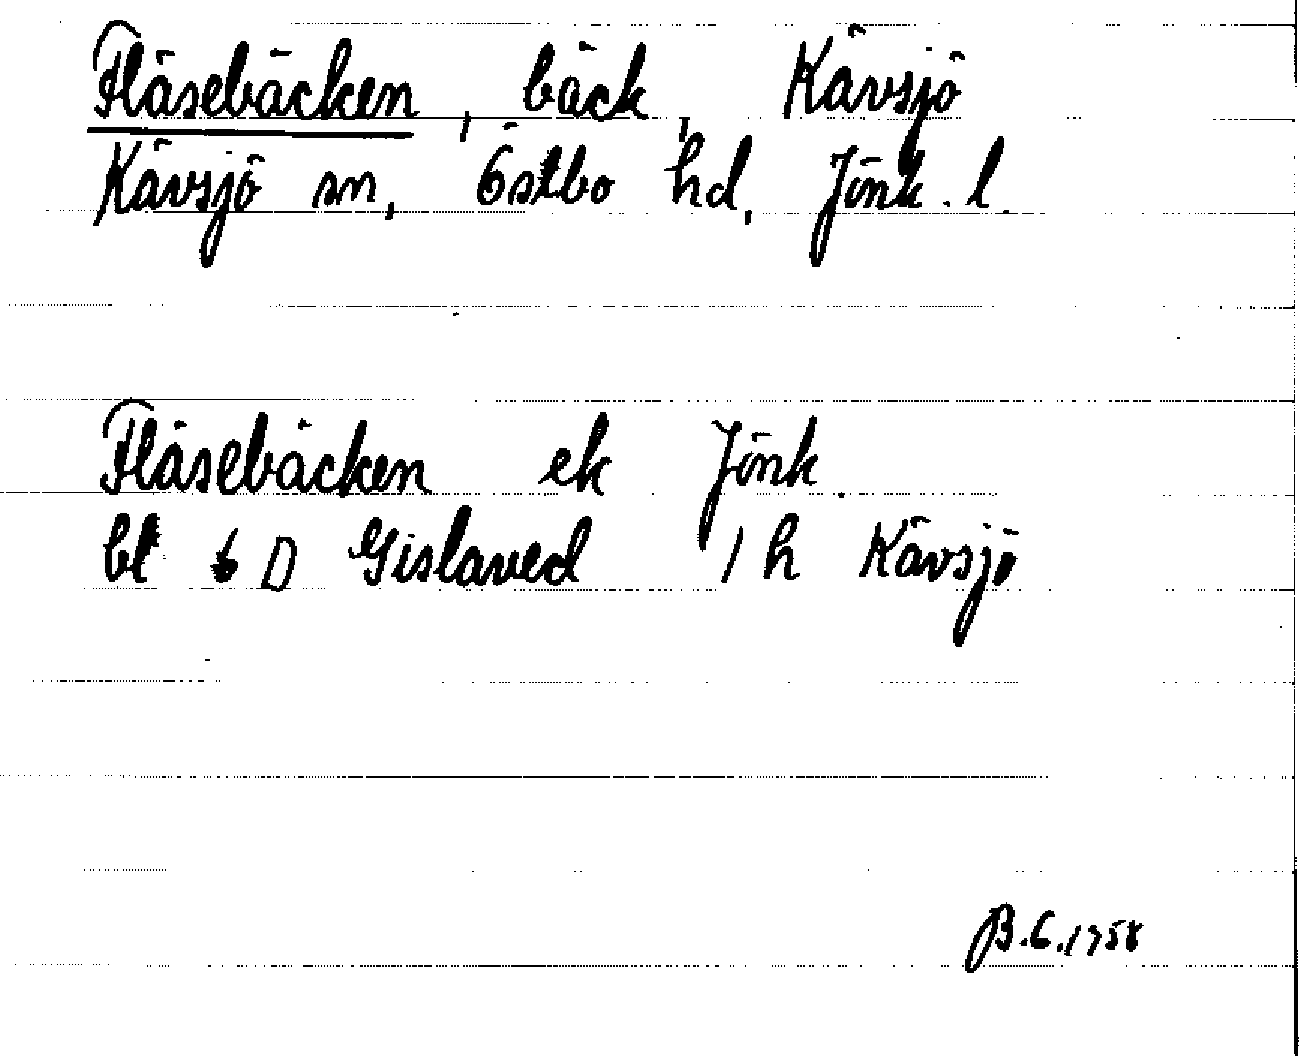 Fläsebäcken, bäck, Kävsjö
Kävsjö sn, Östbo hd, Jönk. l.
Fläsebäcken ek Jönk.
bl 6 D Gislaved / h Kävsjö
B.C.1958